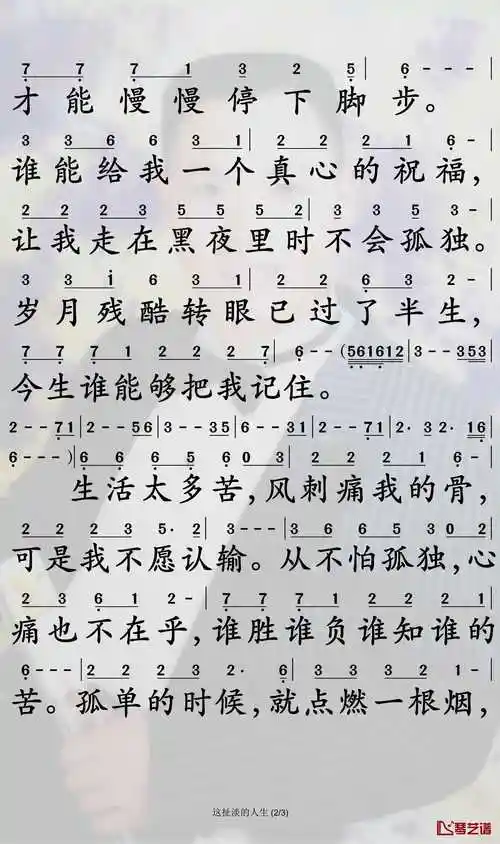 7 7 7 1 3 2 5 | 6 - - - |
才能慢慢停下脚步。
3 3 6 6 3 1 | 2 2 2 1 6 - |
谁能给我一个真心的祝福,
2 2 2 3 5 5 5 2 | 3 3 5 3 - |
让我走在黑夜里时不会孤独。
3 3 i 6 3 1 | 2 2 6 3 2 - |
岁月残酷转眼已过了半生,
7 7 7 1 2 2 2 7 | 6 - - (561612 | 3 - - 353 |
今生谁能够把我记住。
2 - - 71 | 2 - - 56 | 3 - - 35 | 6 - - 31 | 2 - - 71 | 2· 32· 16 |
6 - - - ) | 6 6 6 5 6 0 3 | 2 2 1 7 2 1 | 6 - - |
生活太多苦,风刺痛我的骨,
2 2 2 3 5· 2 | 3 - - - | 3 6 6 5 3 0 2 |
可是我不愿认输。从不怕孤独,心
2 3 6 1 2 - | 7 7 7 1 2 2 2 1 |
痛也不在乎,谁胜谁负谁知谁的
6 - - - | 2 2 2 3 2· 6 | 3 3 3 2 1 - |
苦。孤单的时候,就点燃一根烟,
这扯淡的人生 (2/3)
琴艺谱